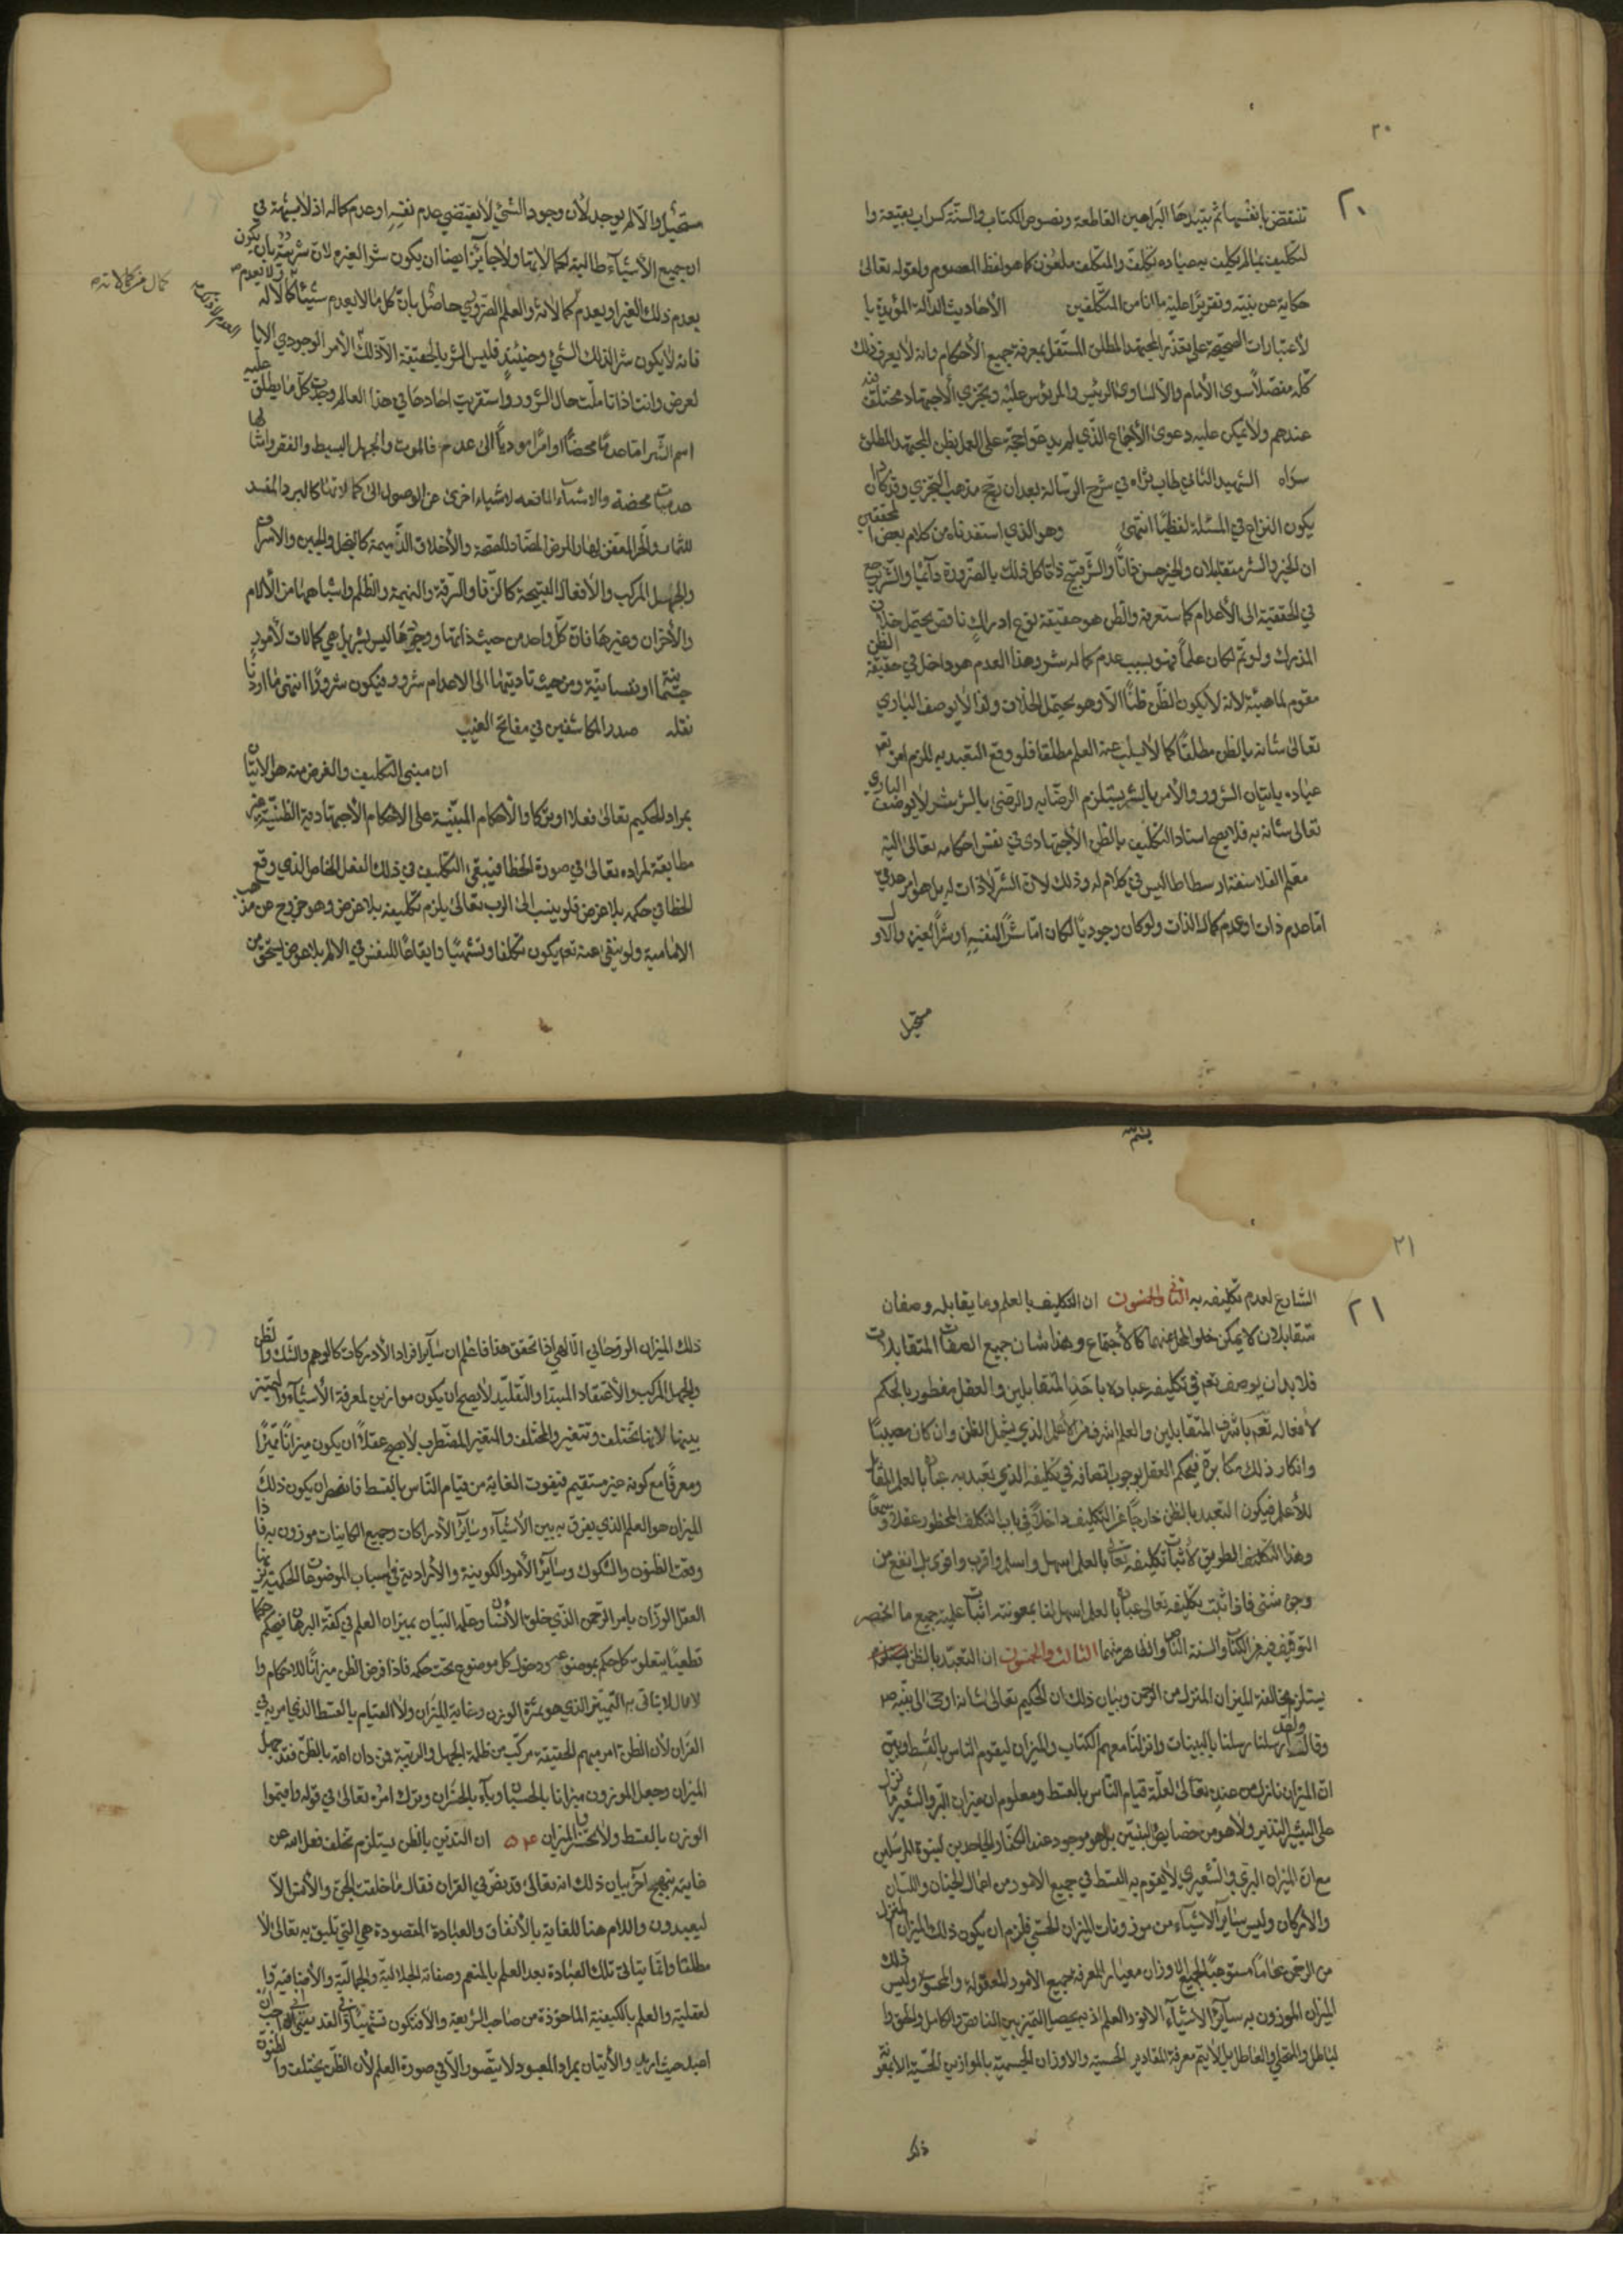 ٢٠
تنتقض بانفسها ثم تبتيدها البراهين القاطعة ونصوص الكتاب والسنة كسراب بقيعة وا
لتكليف بما لم يكلف به عباده تكلف والمتكلف ملعون كما هو لفظ المعصوم ولقوله تعالى
حكاية عن نبيه وتقريرا عليه ما انا من المتكلفين الأحاديث الدالة المؤيدة با
لاعتبارات الصحيحة على تقدير المجتهد المطلق المستقل بمعرفة جميع الأحكام وانه لا يعرف ذلك
كله مفصلا سوى الأمام والا لساوى الرئيس والمرؤس عليه وتجزي الأجتهاد مختلف فيه
عندهم ولا يمكن عليه دعوى الأجماع الذي لم يدعوا حجة على العمل بظن المجتهد المطلق
سواه الشهيد الثاني طاب ثراه في شرح الرسالة بعد ان رجح مذهب التجزي وقد كاد ان
يكون النزاع في المسئلة لفظيا انتهى وهو الذي استفدناه من كلام بعض المحققين
ان الخير والشر متقابلان والخير حسن ذاتا والشر قبيح ذاتا كل ذلك بالضرورة دائما والشر يرجع
في الحقيقة الى الأعدام كما ستعرفه والظن هو حقيقة نوع ادراك ناقص يحتمل خلاف
المدرك ولو تم لكان علما فهو بسبب عدم كماله شر وهذا العدم هو داخل في حقيقة الظن
مقوم لماهيته لانه لا يكون الظن ظنا الا وهو يحتمل الخلاف ولذا لا يوصف الباري
تعالى شانه بالظن مطلقا كما لا يسلب عنه العلم مطلقا فلو وقع التعبد به للزم امره تعم
عباده باتيان الشرور والأمر بالشر يستلزم الرضا به والرضى بالشر شر لا يوصف الباري
تعالى شانه به فلا يصح اسناد التكليف بالظن الأجتهادي في نفس احكامه تعالى اليه
معلم الفلاسفة ارسطاطاليس في كلام له وذلك لان الشر لا ذات له بل هو امر عدمي
اما عدم ذات او عدم كمال الذات ولو كان وجوديا لكان اما شرا لنفسه او شرا لغيره والاول
مستحيل
مستحيل والا لم يوجد لأن وجود الشئ لا يقتضي عدم نفسه او عدم كماله اذ لا شبهة في
ان جميع الأشياء طالبة لكمالاتها ولا جائز ايضا ان يكون شرا لغيره لان شريته بان يكون
يعدم ذلك الغير او يعدم كمالاته والعلم الضروري حاصل بان كل ما لا يعدم شيئا كمالا له
فانه لا يكون شرا لذلك الشئ وحينئذ فليس الشر بالحقيقة الا ذلك الأمر الوجودي الا با
لعرض وانت اذا تاملت حال الشرور واستقريت احادها في هذا العالم وجدت كل ما يطلق عليه
اسم الشر اما عدما محضا او امرا موديا الى عدم فالموت والجهل البسيط والفقر وامثالها
عدميات محضة والاشياء المانعة لاشياء اخرى عن الوصول الى كمالاتها كالبرد المفسد
للثمار والحر المعفن لها والمرض المضاد للصحة والأخلاق الذميمة كالبخل والجبن والاسراف
والجهل المركب والأفعال القبيحة كالزنا والسرقة والنميمة والظلم واشباهها من الألام
والأحزان وغيرها فان كل واحد من حيث ذاتها ووجودها ليس بشر بل هي كمالات لأمور
جسمانية او نفسانية ومن حيث تاديتها الى الاعدام شرور فيكون شرورا انتهى ما اردنا
نقله صدر المكاشفين في مفاتح الغيب
ان مبنى التكليف والغرض منه هو الاتيان
بمراد الحكيم تعالى فعلا او تركا والأحكام المبتنية على الاحكام الأجتهادية الظنية غير
مطابقة لمراده تعالى في صورة الخطا فيبقى التكليف في ذلك الفعل الخاص الذي وقع
الخطا في حكمه بلا غرض فلو ينسب الى الرب تعالى يلزم تكليفه بلا غرض وهو خروج عن مذهب
الامامية ولو ينفى عنه تعم يكون تكلفا وتشهيا وايقاعا للنفس في الألم بلا عوض يستحق من
كمال من كمالاته
٢١
الشارع لعدم تكليفه به الثاني والخمسون ان التكليف بالعلم وما يقابله وصفان
متقابلان لا يمكن خلو المحل عنهما كالأجتماع وهذا شان جميع الصفات المتقابلات
فلا بد ان يوصف تعم في تكليفه عباده باحد المتقابلين والعقل مفطور بالحكم
لأفعاله تعم باشرف المتقابلين والعلم اشرف من الاعلم الذي يشمل الظن وان كان مصيبا
وانكار ذلك مكابرة فيحكم العقل بوجوب اتصافه في تكليفه الذي يتعبد به عباده بالعلم المقابل
للأعلم فيكون التعبد بالظن خارجا عن التكليف داخلا في باب التكلف المحظور عقلا وسمعا
وهذا التكليف الطريق لأثبات تكليفه تعالى بالعلم اسهل واسلم واقرب واقوى بل انفع من
وجوه شتى فاذا ثبت تكليفه تعالى عباده بالعلم اسهل لنا بمعونته اثبات علية جميع ما انحصر
التوقيف فيه من الكتاب والسنة النص والظاهر منهما الثالث والخمسون ان التعبد بالظن
يستلزم مخالفة الميزان المنزل من الرحمن وبيان ذلك ان الحكيم تعالى شانه اوحى الى نبيه ص
وقال ولقد ارسلنا رسلنا بالبينات وانزلنا معهم الكتاب والميزان ليقوم الناس بالقسط وبين
ان الميزان نازل من عنده تعالى لعلة قيام الناس بالقسط ومعلوم ان ميزان البر والشعير ما نزل
على البشير النذير ولا هو من خصايص النبيين بل هو موجود عند الكفار والجاحدين لنبوة المرسلين
مع ان الميزان البري والشعيري لا يقوم به القسط في جميع الامور من اعمال الجنان واللسان
والاركان وليس سائر الاشياء من موزونات الميزان الحسي فلزم ان يكون ذلك الميزان المنزل
من الرحمن عاما مستوعبا لجميع الاوزان معيار المعرفة جميع الأمور المعقولة والمحسوسة وليس ذلك
الميزان الموزون به سائر الاشياء الا نور العلم اذ به يحصل التميز بين الناقص والكامل والحق وا
لباطل والمتحلي والعاطل بل لا يتم معرفة المقادير الحسية والاوزان الجسمية بالموازين الحسية الا بمعونة
ذلك
ذلك الميزان الروحاني الالهي اذا تحقق هذا فاعلم ان سائر افراد الأدراكات كالوهم والشك والظن
والجهل المركب والأعتقاد المبتدا والتقليد لا يصح ان يكون موازين لمعرفة الأشياء والتميز
بينها لأنها تختلف وتتغير والمختلف والمتغير المضطرب لا يصح عقلا ان يكون ميزانا مميزا
ومعرفا مع كونه غير مستقيم فيفوت الغاية من قيام الناس بالقسط فانحصر ان يكون ذلك
الميزان هو العلم الذي يفرق به بين الأشياء وسائر الأدراكات وجميع الكاينات موزون به فاذا
وقعت الظنون والشكوك وسائر الأمور الكونية والأرادية في اسباب الموضوعات الحكمية يزنها
العقل الوزان بامر الرحمن الذي خلق الأنسان وعلمه البيان بميزان العلم في كفة البرهان فيحكم حكما
قطعيا يتعلق كل حكم بموضوعه ودخول كل موضوع تحت حكمه فاذا فرض الظن ميزانا للاحكام وا
لاعمال لا يتاتى به التمييز الذي هو ثمرة الوزن وغاية الميزان ولا القيام بالقسط الذي امر به في
القران لأن الظن امر مبهم الحقيقة مركب من ظلمة الجهل والريبة فمن دان الله بالظن فقد جهل
الميزان وجعل الموزون ميزانا بالحسبان وباء بالخسران وترك امره تعالى في قوله واقيموا
الوزن بالقسط ولا تخسروا الميزان ٥٤ ان التدين بالظن يستلزم تخلف فعل الله عن
غايته بنهج اخر بيان ذلك انه تعالى قد نص في القران فقال ما خلقت الجن والأنس الا
ليعبدون واللام هنا للغاية بالأتفاق والعبادة المقصودة هي التي تليق به تعالى لا
مطلقا وانما يتاتى تلك العبادة بعد العلم بالمنعم وصفاته الجلالية والجمالية والأضافية وا
لعقلية والعلم بالكيفية الماخوذة من صاحب الشريعة والا فتكون تشهيا
اعبد حيث اريد والأتيان بمراد المعبود لا يتصور الا في صورة العلم لأن الظن يختلف والظنون